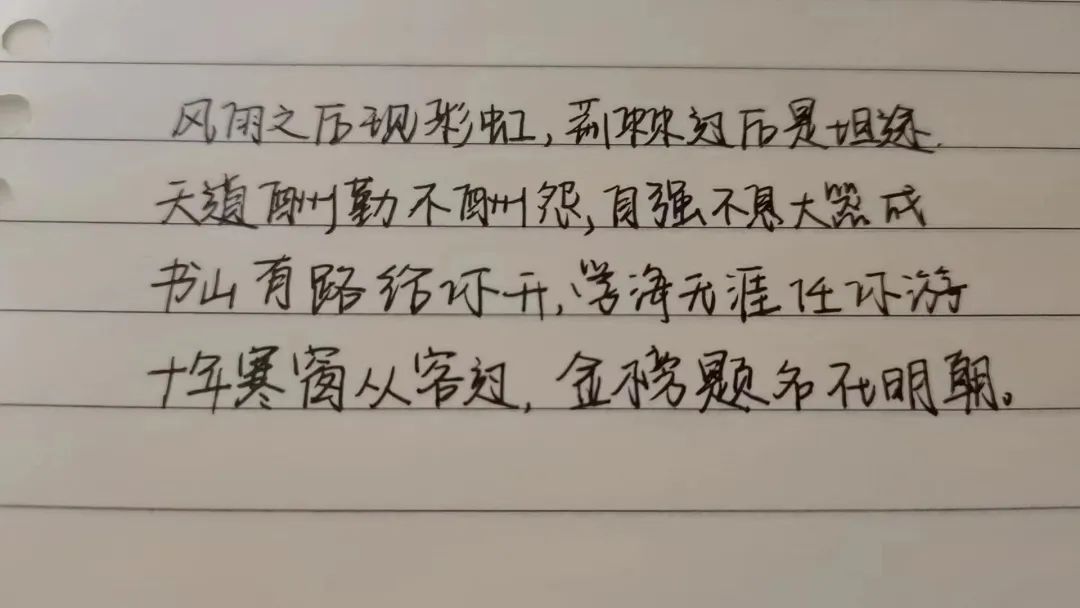 风雨之后现彩虹,荆棘过后是坦途.
天道酬勤不酬怨,自强不息大器成
书山有路给你开,学海无涯任你游
十年寒窗从容过,金榜题名在明朝。